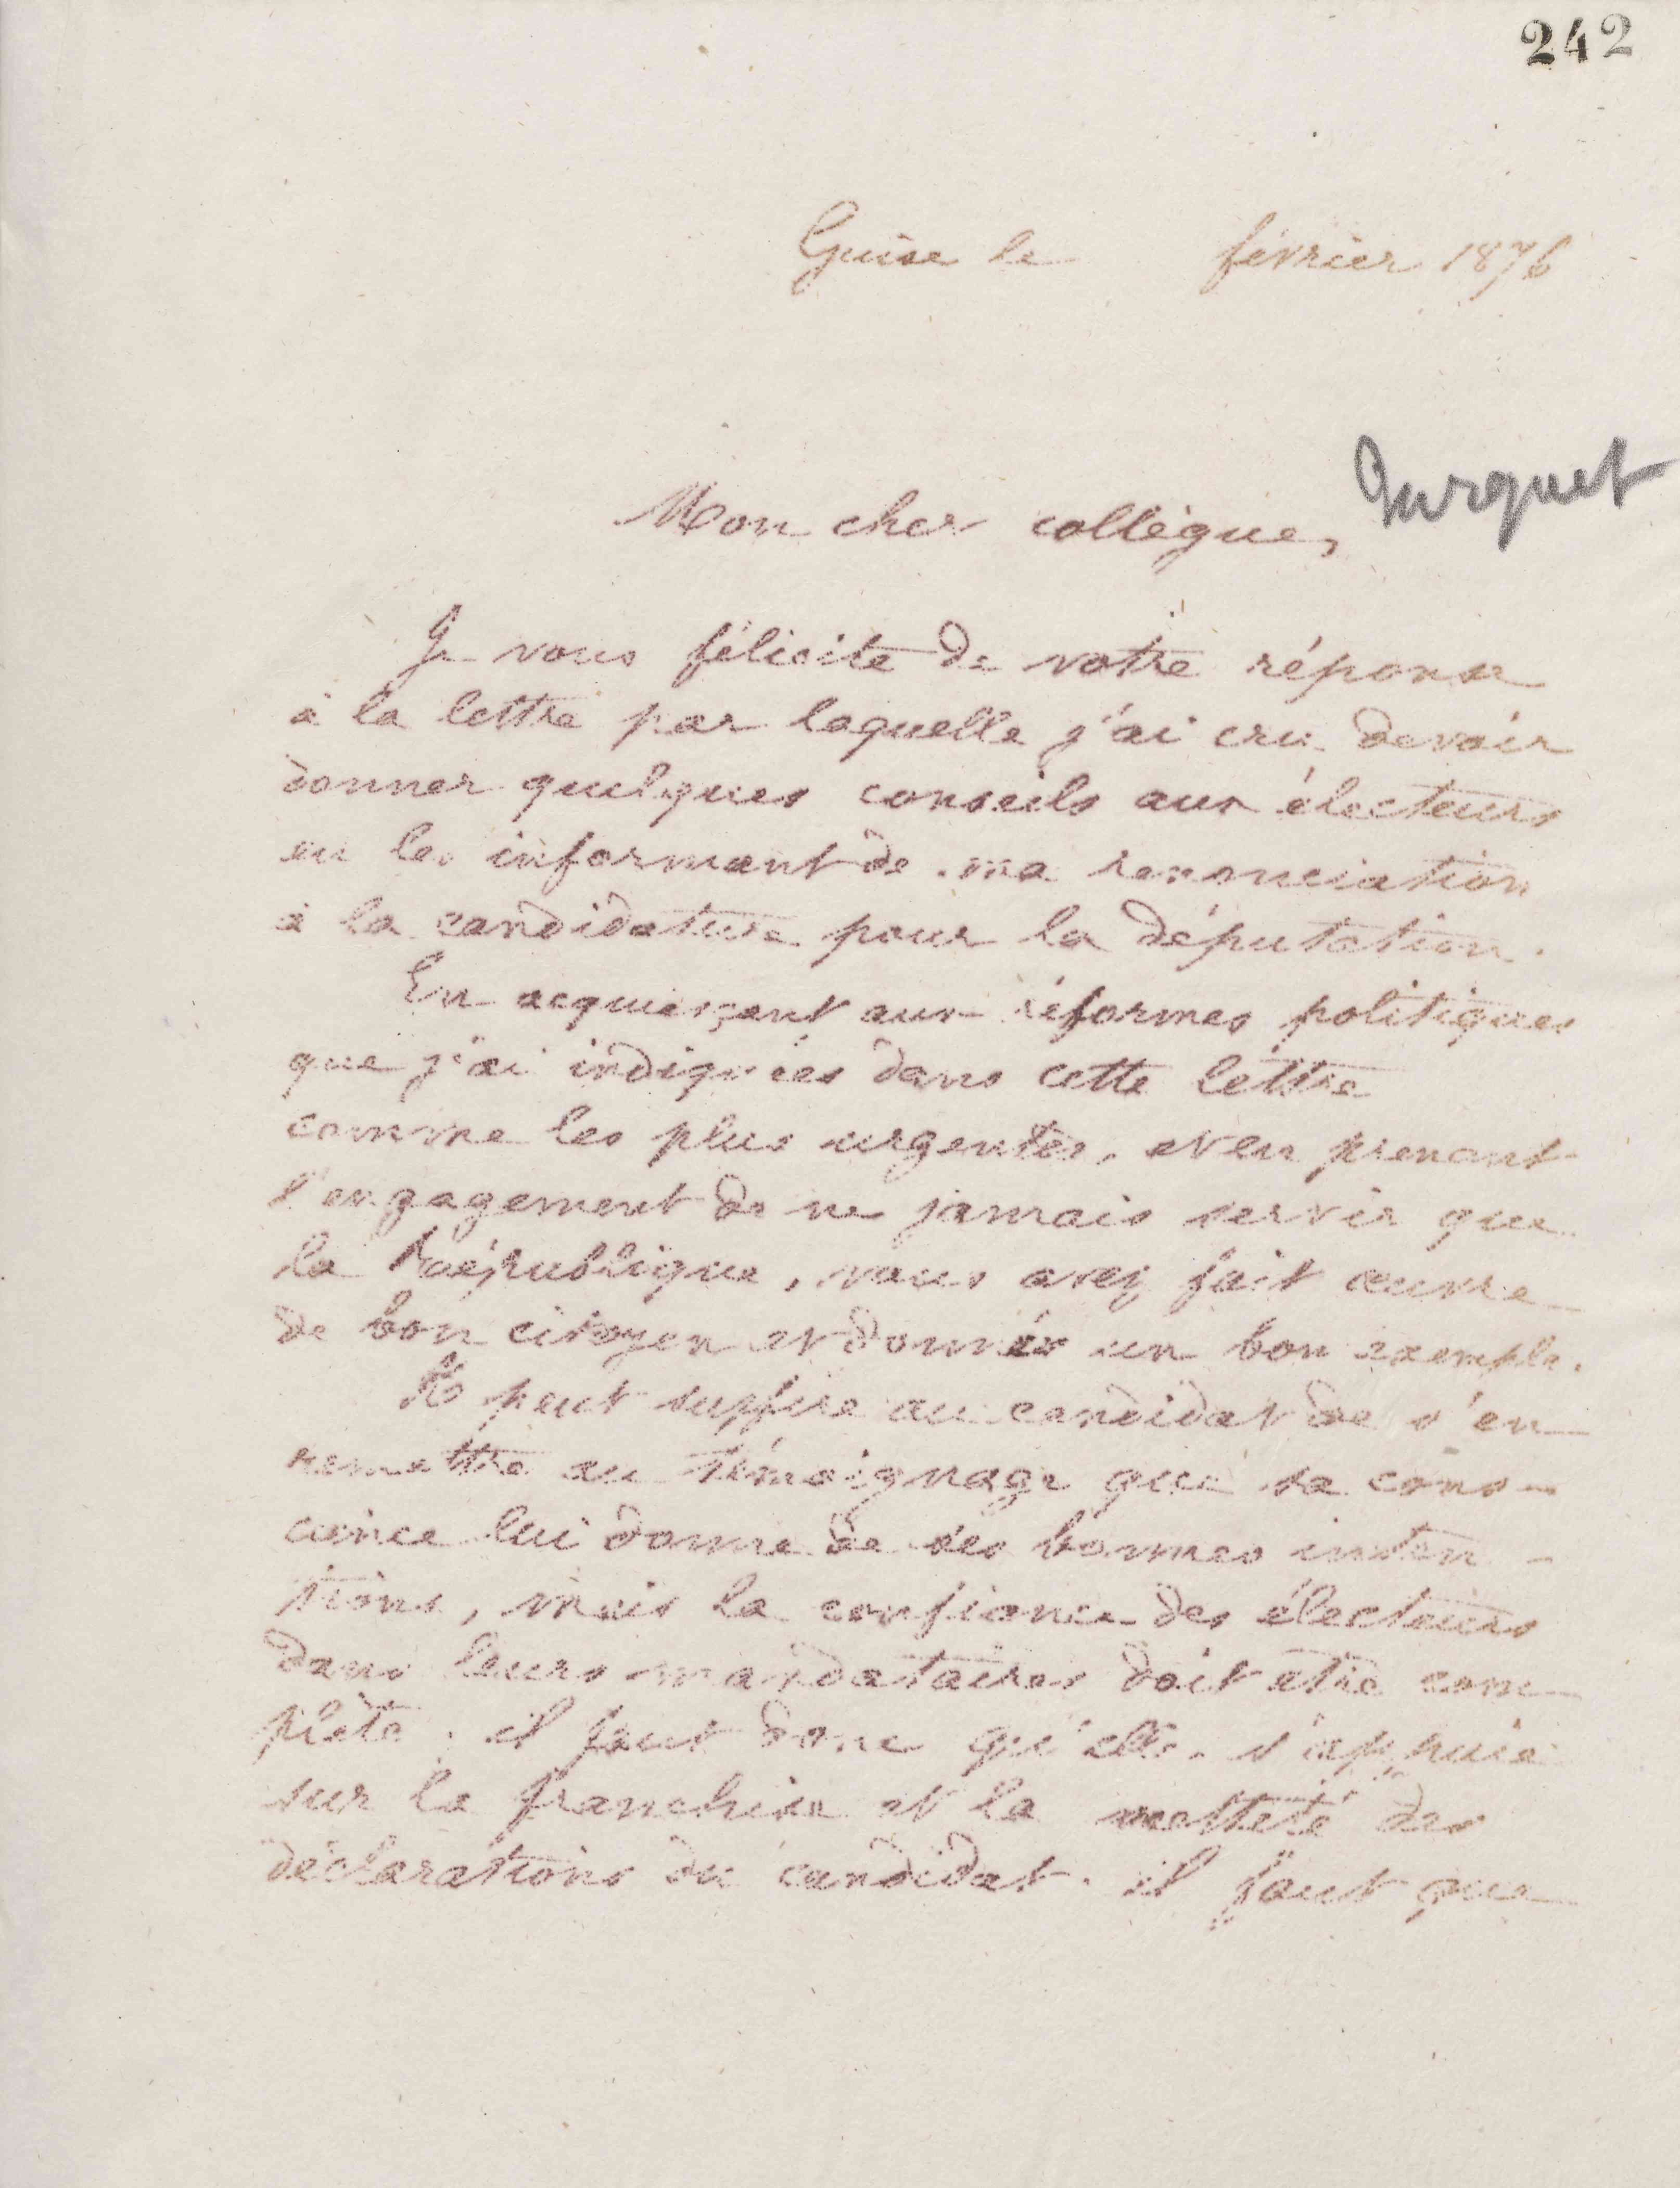 242
Guise le février 1876
Turquet
Mon cher collègue,
Je vous félicite de votre réponse
à la lettre par laquelle j'ai cru devoir
donner quelques conseils aux électeurs
en les informant de ma renonciation
à la candidature pour la députation.
En acquiesçant aux réformes politiques
que j'ai indiquées dans cette lettre
comme les plus urgentes, et en prenant
l'engagement de ne jamais servir que
la République, vous avez fait œuvre
de bon citoyen et donnés un bon exemple.
Il peut suffire au candidat de s'en
remettre au témoignage que sa cons-
cience lui donne de ses bonnes inten-
tions, mais la confiance des électeurs
dans leurs mandataires doit être com-
plète ; il faut donc qu'elle s'appuie
sur la franchise et la netteté des
déclarations du candidat. il faut que